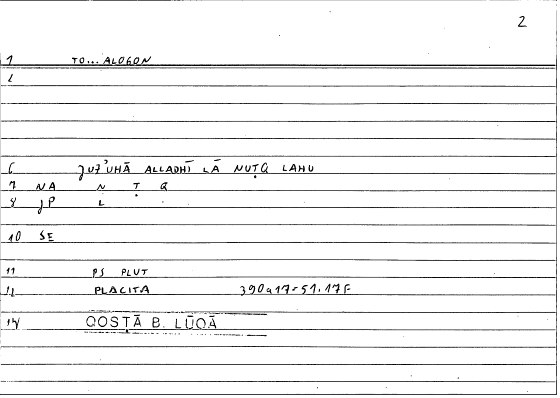 2
1 TO... ALOGON
2
6 ǰUZ'UHĀ ALLADHĪ LĀ NUṬQ LAHU
7 NA N Ṭ Q
8 ǰP L
10 SE
11 PS PLUT
12 PLACITA 390a17=51.17F
14 QOSṬĀ B. LŪQĀ